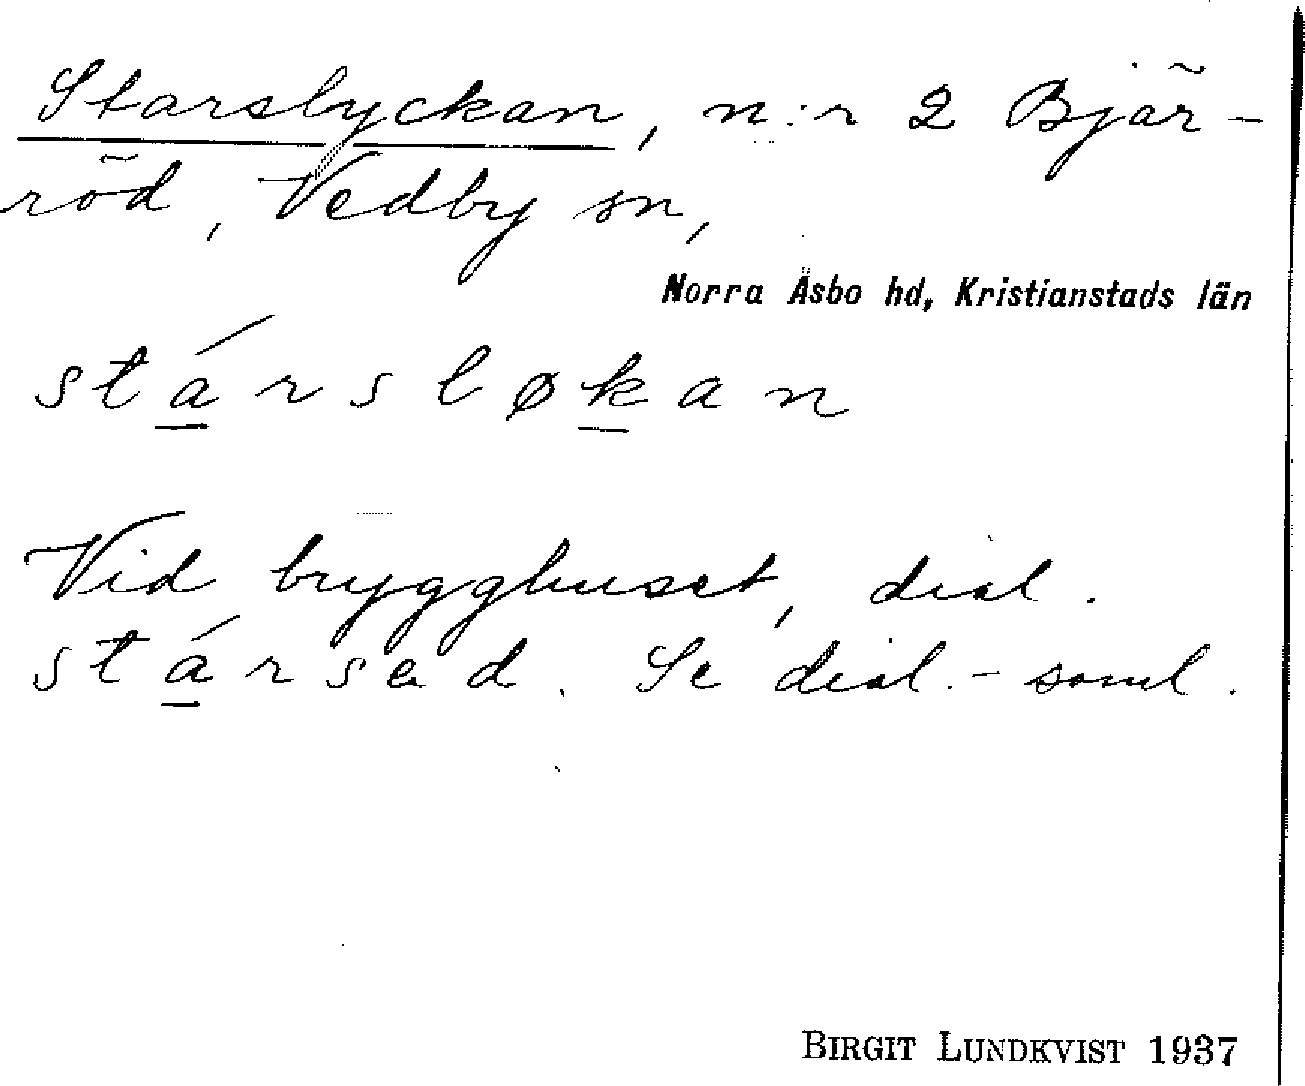 Starslyckan, n:r 2 Bjär-
röd, Vedby sn,
Norra Åsbo hd, Kristianstads län
stársløkan
Vid brygghuset, dial.
stársed. Se dial.-saml.
BIRGIT LUNDKVIST 1937